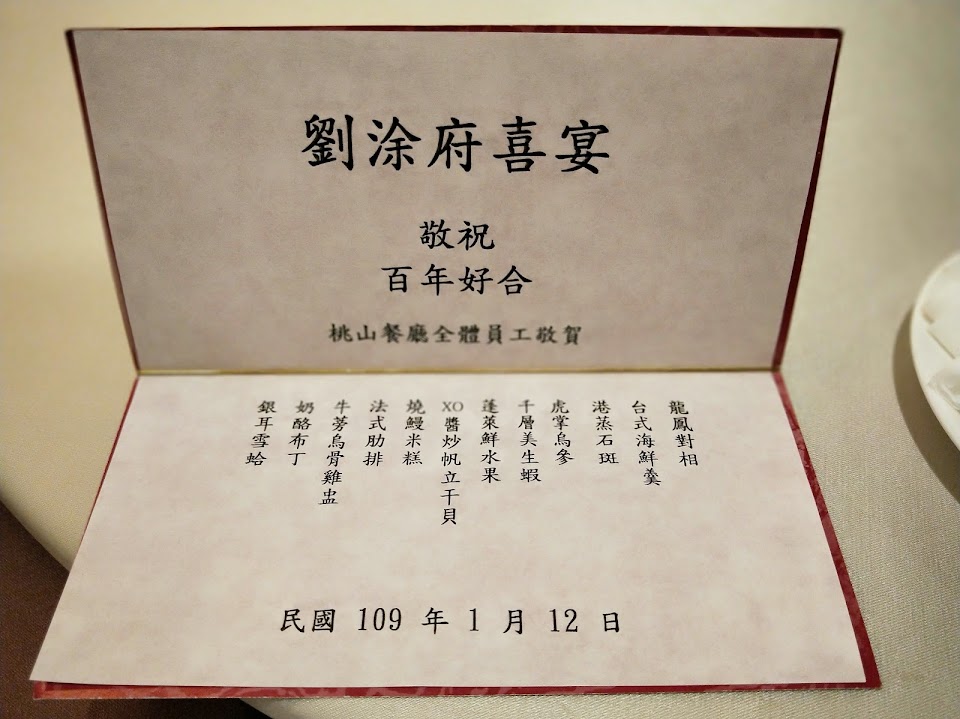 劉涂府喜宴
敬祝
百年好合
桃山餐廳全體員工敬賀
龍鳳對相
台式海鮮羹
港蒸石斑
虎掌烏參
千層美生蝦
蓬萊鮮水果
XO醬炒帆立干貝
燒鰻米糕
法式肋排
牛蒡烏骨雞盅
奶酪布丁
銀耳雪蛤
民國 109 年 1 月 12 日